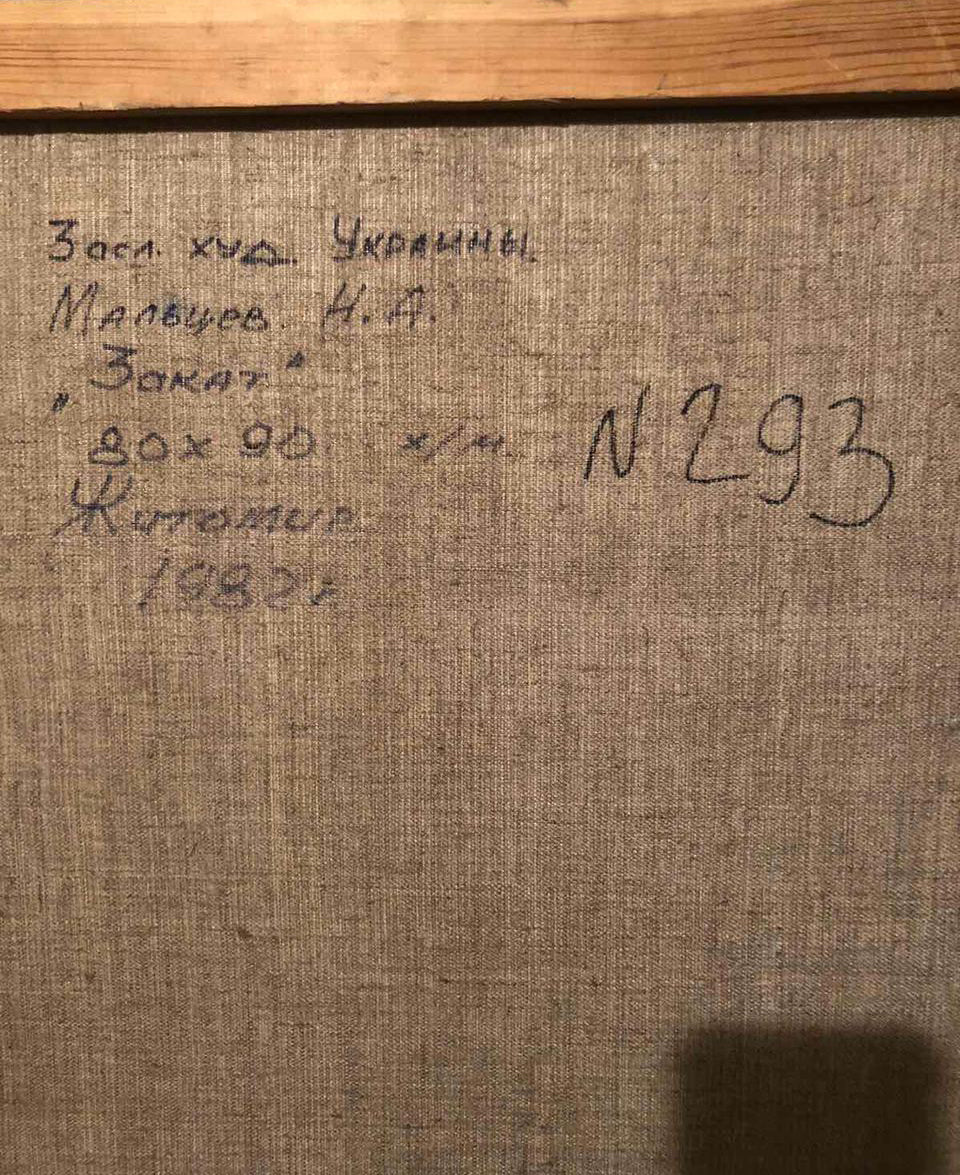 Засл. худ Украины.
Мальцов. Н. А.
„Закат"
80х90. х/м
N293
Житомир
1982г